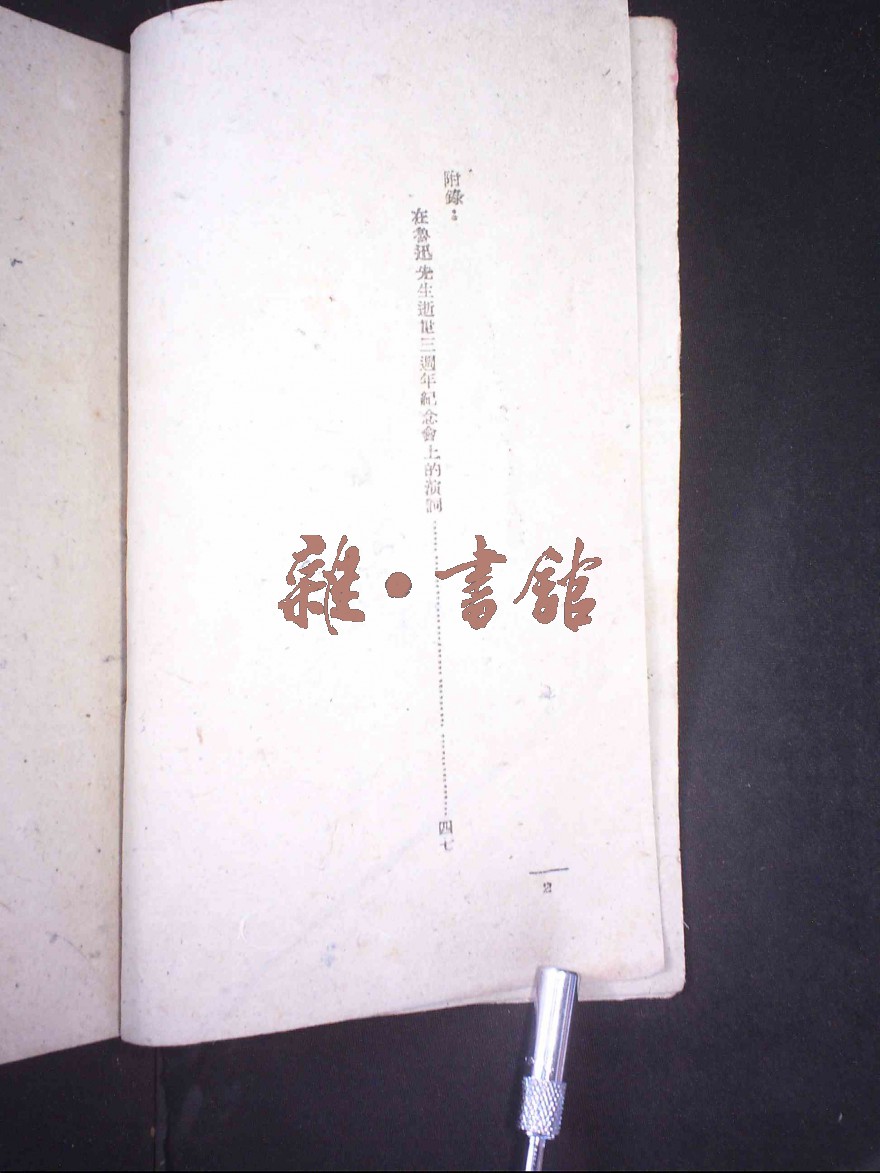 附錄：
在魯迅先生逝世三週年紀念會上的演詞……………………………………四七
2
雜·書館